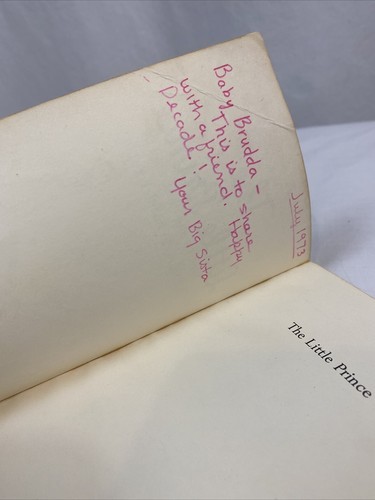 July 1973
Baby Brudda –
This is to share
with a friend. Happy
Decade!
– Your Big Sista
The Little Prince